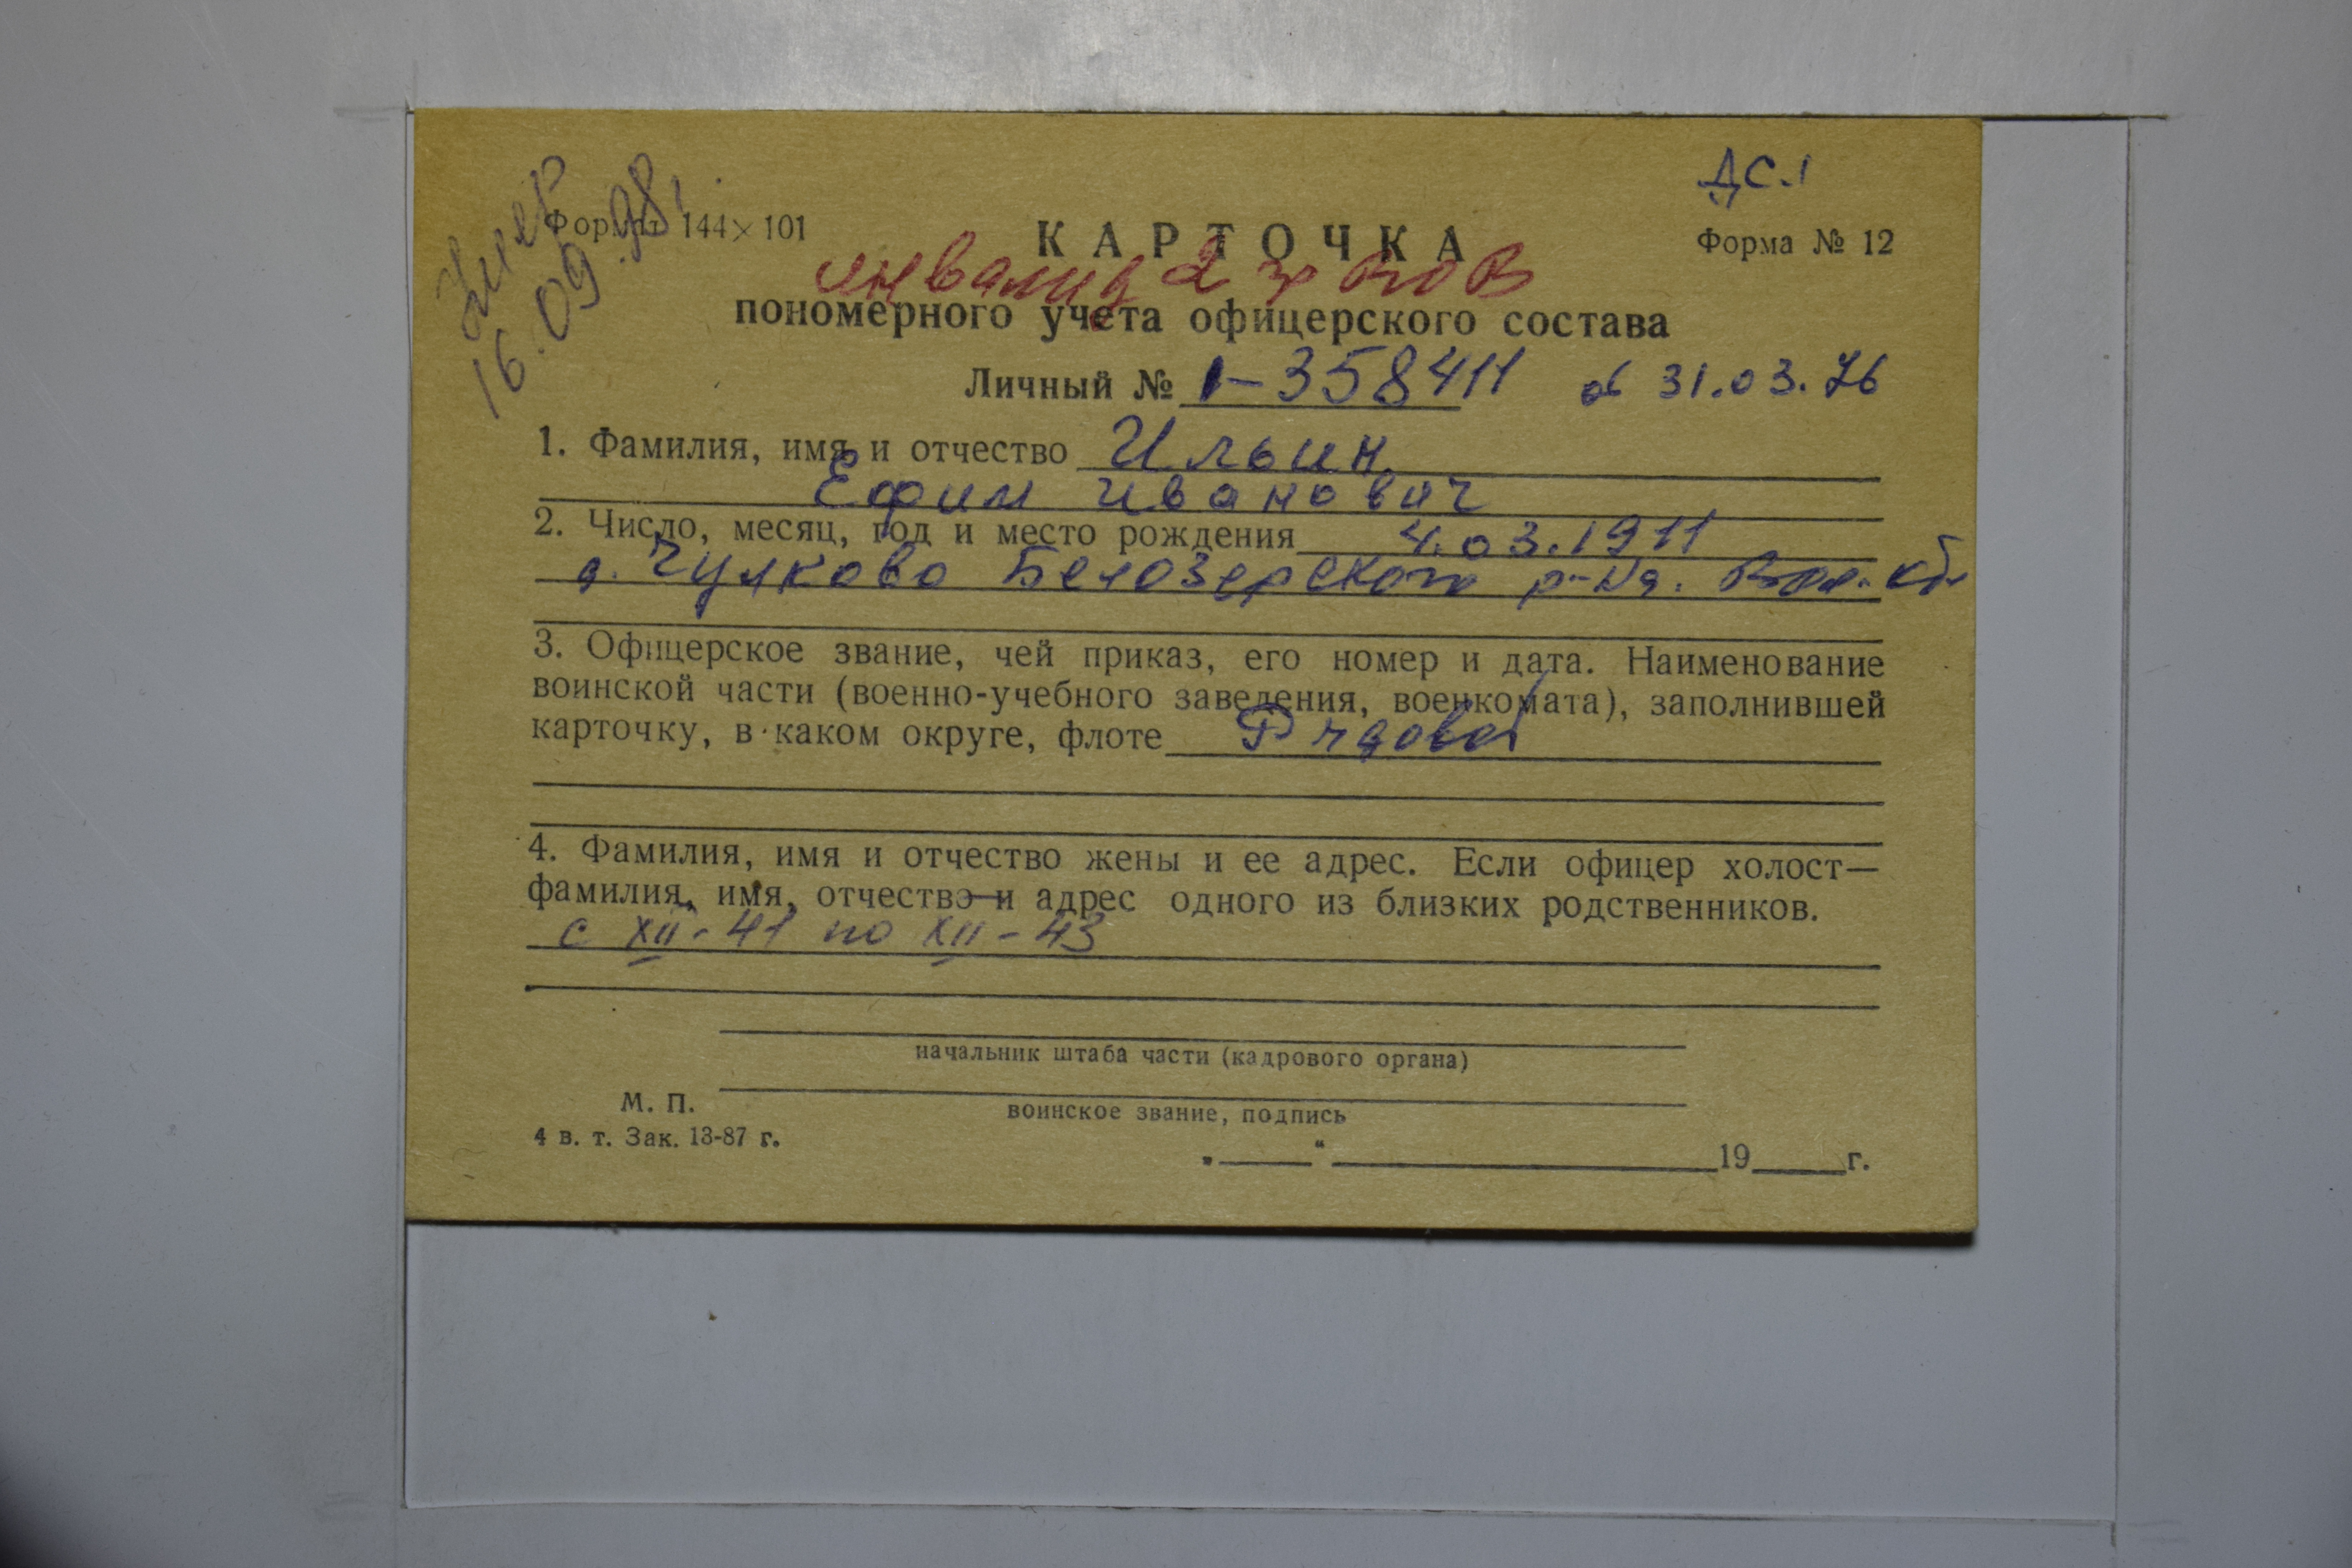 Умер
16.09.98г.
ДС.1
Формат 144×101
КАРТОЧКА
Форма № 12
инвалид 2 гр ВОВ
пономерного учета офицерского состава
Личный № 1-358411 от 31.03.76
1. Фамилия, имя и отчество Ильин
Ефим Иванович
2. Число, месяц, год и место рождения 4.03.1911
д. Чулково Белозерского р-на. Вол. обл
3. Офицерское звание, чей приказ, его номер и дата. Наименование
воинской части (военно-учебного заведения, военкомата), заполнившей
карточку, в каком округе, флоте Рядовой
4. Фамилия, имя и отчество жены и ее адрес. Если офицер холост—
фамилия, имя, отчество и адрес одного из близких родственников.
с XII-41 по XII-43
начальник штаба части (кадрового органа)
М. П.
воинское звание, подпись
4 в. т. Зак. 13-87 г.
„ “ 19 г.